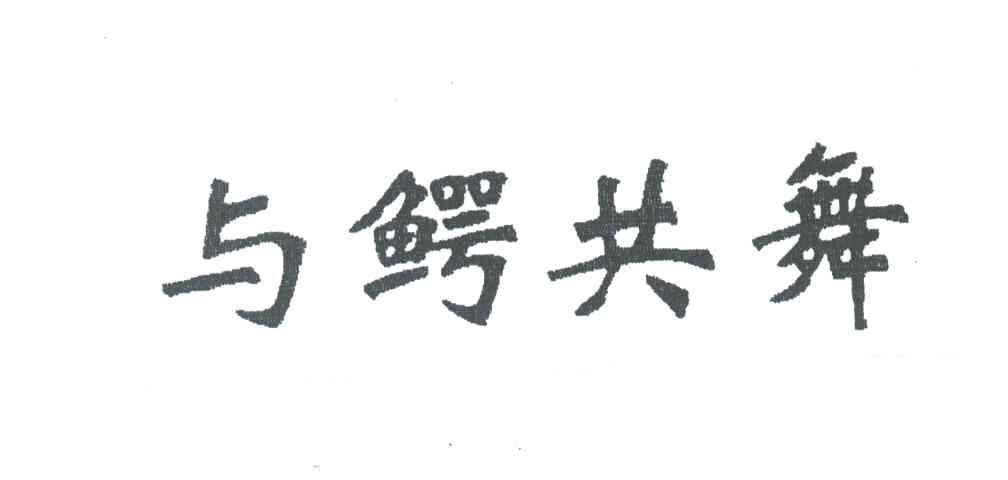 与鳄共舞